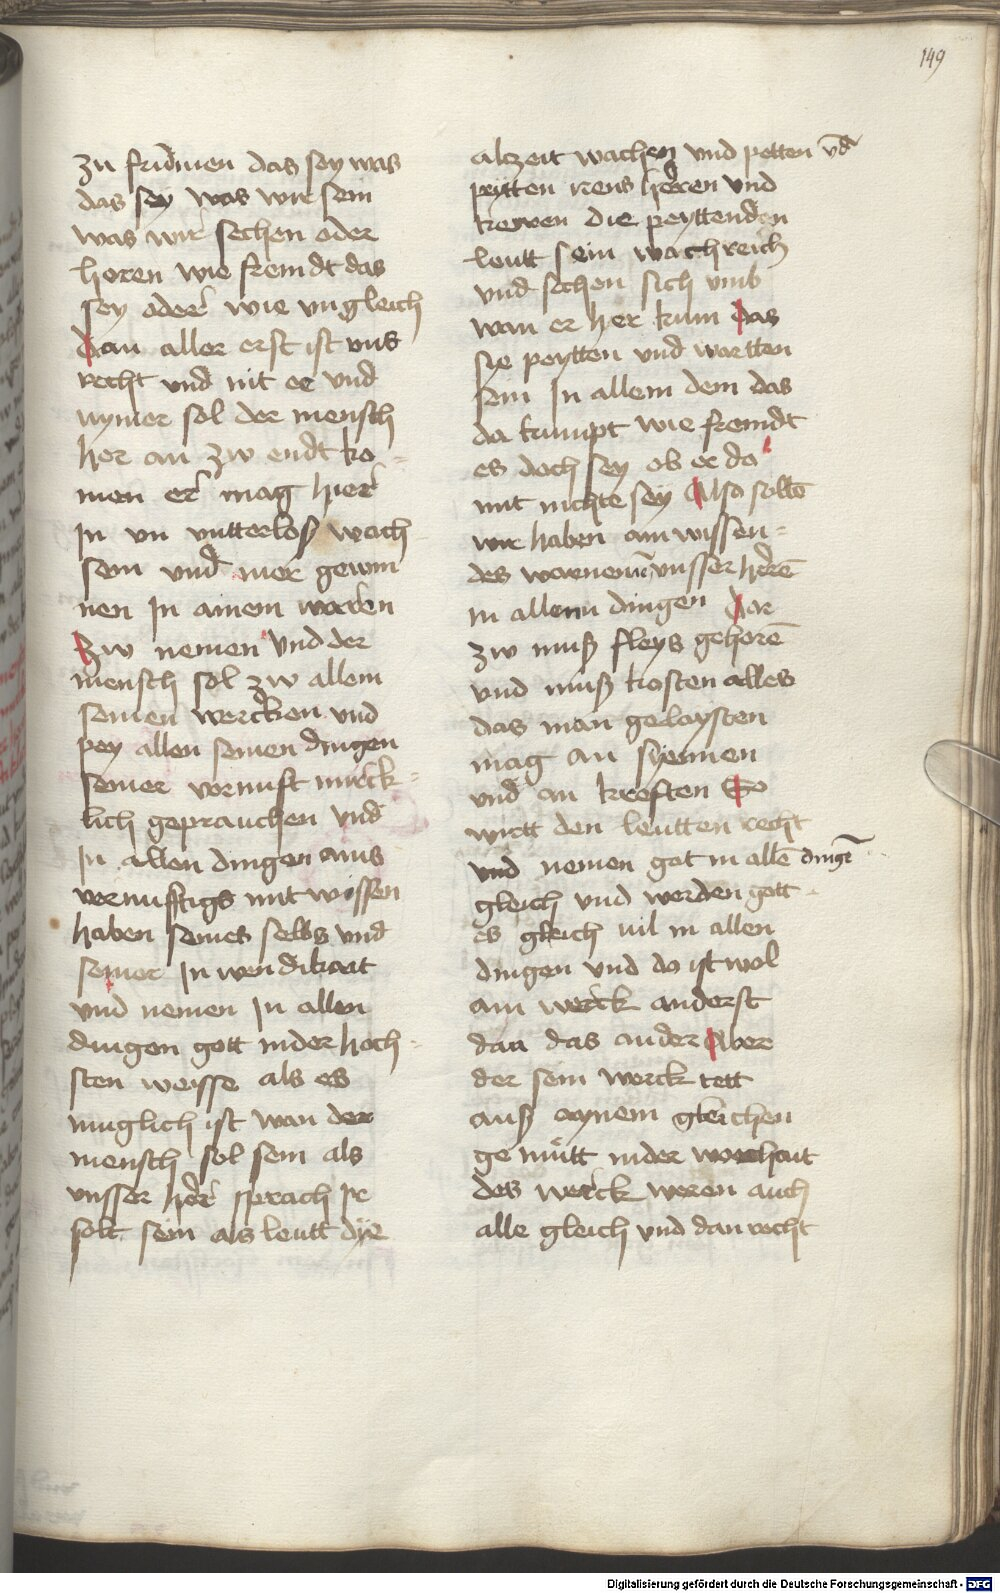 149
zu frummen das sey was
das sey was wir sein
was wir sechen oder
horen wie fremdt das
sey oder wie vngleich
dan aller erst ist vns
recht vnd nit ee vnd
nymer sol der mensch
her an zw endt ko-
men er mag hier
In vn vntterloß wach-
sen vnd mer gewin
nen In ainem waren
zw nemen Vnd der
mensch sol zw allem
seinen wercken vnd
pey allen seinen dingen
seiner vernuft mirck-
lich geprauchen vnd
In allen dingen ains
vernufftigs mit wissen
haben seines selbs vnd
seiner In wendikait
vnd nemen In allen
dingen gott in der hoch-
sten weisse als es
muglich ist wan der
mensch sol sein als
vnsser her sprach Ir
solt sein als leutt dye
alzeit wachen vnd petten vnd
peytten irens heren vnd
trewen die peyttenden
leutt sein wachreich
vnd sechen sich vmb
wan er her kum das
sye peytten vnd wartten
sein In allem dem das
da kumpt wie fremdt
es doch sey ob er do
mit nichte sey Also solle
wir haben ain wissen-
des warnemen vnsser here
in allenn dingen dar
zw muß fleys gehore
vnd muß kosten alles
das man gelaysten
mag an synnen
vnd an kreften So
wirtt den leutten recht
vnd nemen got in alle dinge
gleich vnd werden gott
es gleich vil in allen
dingen vnd do ist wol
ain werck anderst
dan das ander Aber
der sein werck tett
auß aynem gleichen
ge mütt in der warhait
des werck weren auch
alle gleich vnd dan recht
Digitalisierung gefördert durch die Deutsche Forschungsgemeinschaft - DFG